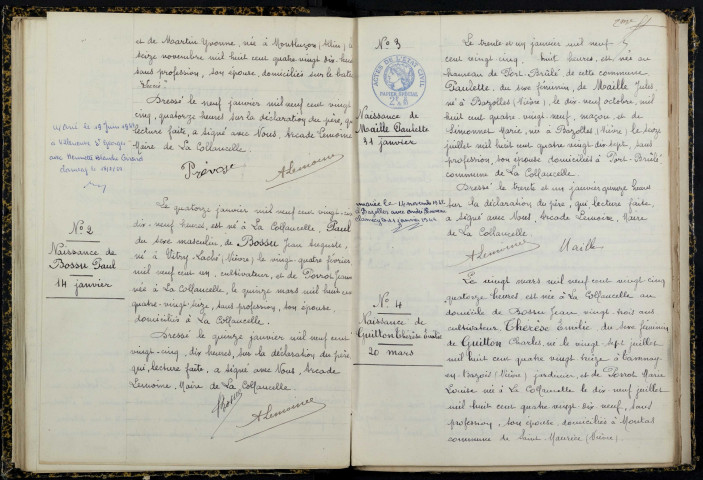 et de Martin Yvonne, née à Montluçon (Allier) le
seize novembre mil huit cent quatre vingt dix-huit
sans profession, son épouse, domiciliés sur le bateau
Dressé le neuf janvier mil neuf cent vingt
cinq, quatorze heures sur la déclaration du père, qui
lecture faite, a signé avec Nous, Arcade Lemoine
Maire de La Collancelle.
Prévost
ALemoine
N° 2
Naissance de
Bossu Paul
14 janvier
Le quatorze janvier mil neuf cent vingt-cinq
dix-neuf heures, est né à La Collancelle, Paul
du sexe masculin, de Bossu Jean Auguste,
né à Vitry-Laché (Nièvre) le vingt-quatre février
mil neuf cent un, cultivateur, et de Perrot Jeanne
née à La Collancelle, le quinze mars mil huit cent
quatre-vingt-seize, sans profession, son épouse
domiciliés à La Collancelle.
Dressé le quinze janvier mil neuf cent
vingt-cinq, dix heures, sur la déclaration du père,
qui, lecture faite, a signé avec Nous, Arcade
Lemoine, Maire de La Collancelle
Bossu
ALemoine
N° 3
ACTES DE L'ÉTAT CIVIL
PAPIER SPÉCIAL
Naissance de
Maille Paulette
31 janvier
Le trente et un janvier mil neuf
cent vingt cinq, huit heures, est née au
hameau de Port-Brûlé de cette commune
Paulette, du sexe féminin, de Maille Jules
né à Bazolles (Nièvre), le dix neuf octobre mil
huit cent quatre-vingt-neuf, maçon, et de
Simonnet Marie, née à Bazolles (Nièvre) le seize
juillet mil huit cent quatre vingt dix sept, sans
profession, son épouse domiciliés à Port-Brûlé
commune de La Collancelle.
Dressé le trente et un janvier quinze heures
sur la déclaration du père, qui, lecture faite,
a signé avec Nous, Arcade Lemoine, Maire
de La Collancelle
ALemoine
Maille
N° 4
Naissance de
Guillon Thérèse Emilie
20 mars
Le vingt mars mil neuf cent vingt cinq
quatorze heures, est née à La Collancelle au
domicile de Bossu Jean vingt trois ans
cultivateur Thérèse Emilie, du sexe féminin
de Guillon Charles, né le vingt sept juillet
mil huit cent quatre vingt treize à Tamnay
en Bazois (Nièvre) jardinier, et de Perrot Marie
Louise née à La Collancelle le dix neuf juillet
mil huit cent quatre vingt dix-neuf, sans
profession, son épouse, domiciliés à
commune de Saint-Maurice (Nièvre).